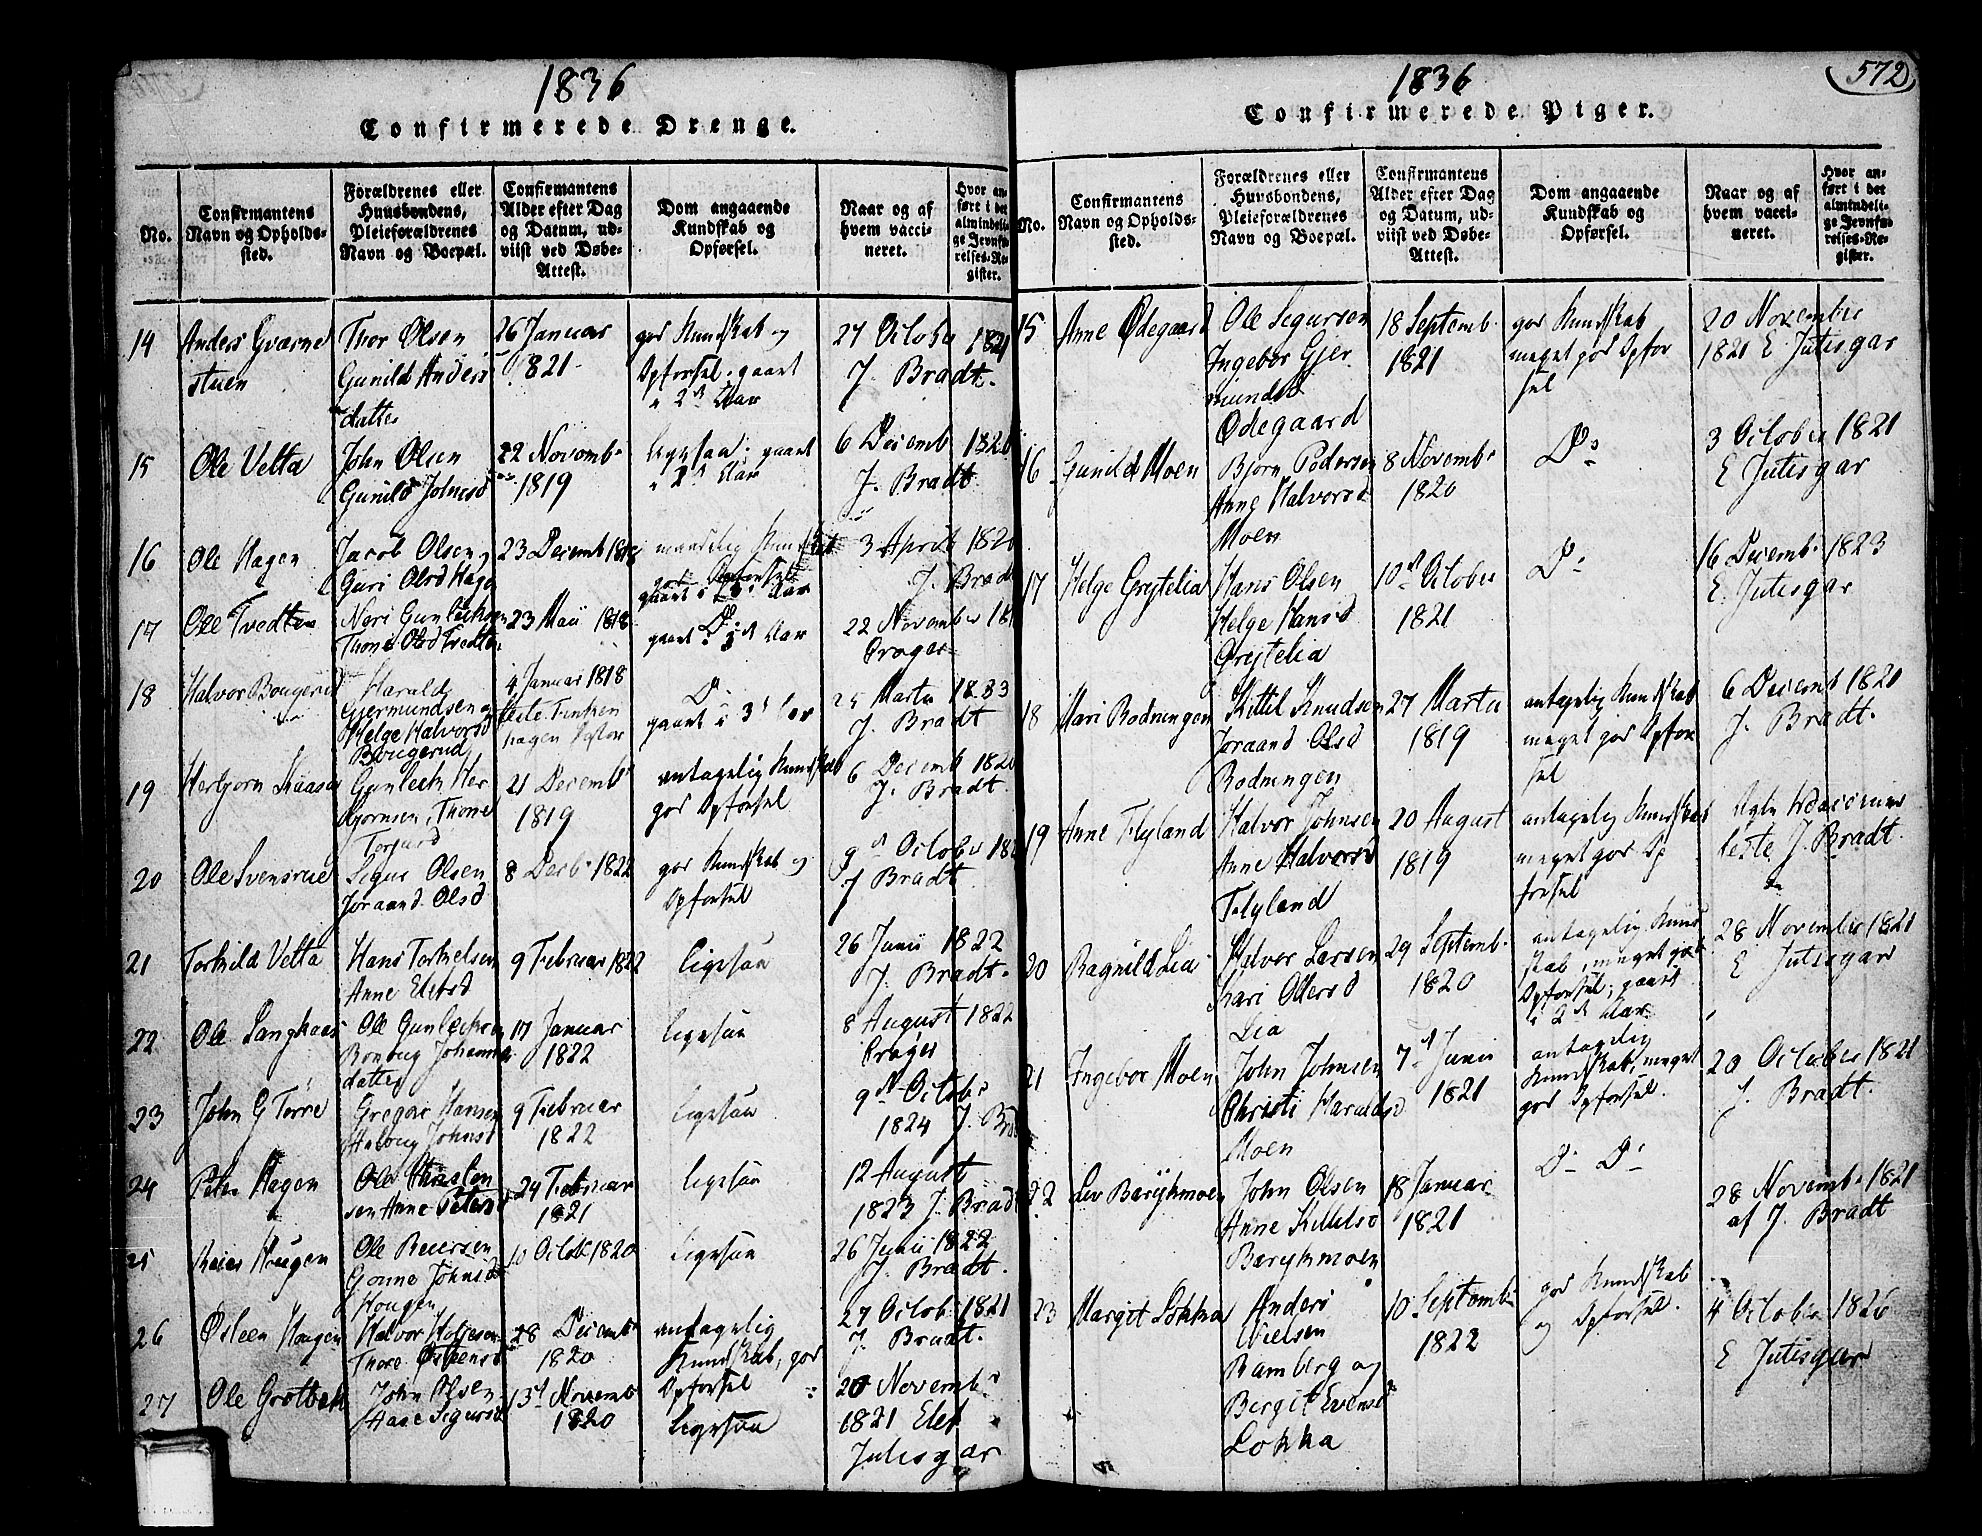 1836
Confirmerede Drenge.
No.
Confirmantens
Navn og Opholds-
sted.
Forældrenes eller
Huusbondens,
Pleieforældrenes
Navn og Boepæl.
Confirmantens
Alder efter Dag
og Datum, ud-
viist ved Døbe-
Attest.
Dom angaaende
Kundskab og
Opførsel.
Naar og af
hvem vacci-
neret.
Hvor an-
ført i det
almindeli-
ge Jevnfø-
relses-Re-
gister.
14
Anders Gværne
stuen
Thor Olsen
Gunild Anders
datter
26 Januar
1821
god Kundskab og
Opførsel. gaaet
i 2d Aar
27 October 1821
J. Bradt.
15
Ole Vetta
John Olsen
Gunild Johnsd
22 Novemb
1819
ligesaa. gaaet
i 2d Aar
6 Decemb 1820
J. Bradt
16
Ole Hagen
Jacob Olsen
Guri Olsd Hagen
23 Decemb
maadelig Kundskab
god Opførsel
gaaet i Aar
3 April 1820
J. Brad
17
Ole Tvedten
Neri Gunleiksen
Thone Olsd Tvedten
23 Maii 1818
Do
gaaet i Aar
22 November
Prager
18
Halvor Bougerud
Harald
Gjermundsen og
Helge Halvorsd
Bougerud
4 Januar 1818
25 Martii 1833
J. Bradt
Do
gaaet i 3d Aar
19
Herbjorn Kaasa
Gunleik Her
bjornsen, Thone
Torjusd
21 Decemb
1819
antagelig Kundskab
god Opførsel
6 Decemb 1820
J. Bradt
20
Ole Svensrue
Sigur Olsen
Joraand Olsd
8 Decbr 1822
god Kundskab og
Opførsel
9d October
J Bradt
21
Torkild Vetta
Hans Torkelsen
Anne Elefsd
9 Februar 1822
ligesaa
26 Junii 1822
J. Bradt.
22
Ole Langkaas
Ole Gunleiksen
Johanna
datter
17 Januar
1822
ligesaa
8 August 1822
Prager
23
John G Torre
Gregar Hansen
Aaboug Johnsd
9 Februar
1822
ligesaa
9d Octobr
1824 J. Br
24
Peter Hagen
Ole Christen
sen Anne Petersd
24 Februar
1821
ligesaa
12 August
1823 J. Bradt
25
Reier Hougen
Ole Reiersen
Gonne Johnsd
Hougen
10 Octob 1820
ligesaa
26 Junii 1822
J. Bradt.
26
Østeen Hougen
Halvor
Thore Østensd
28 Decemb
1820
antagelig
Kundskab, god
Opførsel
27 Octob 1821
J. Bradt.
27
Ole Grotbek
John Olsen
Aase Sigursd
13d Novemb
1820
ligesaa
20 Novemb
1821 Elef
Jutisgar
1836
572
Confirmerede Piger.
No.
Confirmantens
Navn og Opholds-
sted.
Forældrenes eller
Huusbondens,
Pleieforældrenes
Navn og Boepæl.
Confirmantens
Alder efter Dag
og Datum, ud-
viist ved Døbe-
Attest.
Dom angaaende
Kundskab og
Opførsel.
Naar og af
hvem vacci-
neret.
Hvor an-
ført i det
almindeli-
ge Jevnfø-
relses-Re-
gister.
15
Anne Ødegaard
Ole Sigursen
Ingebor Gjer
mundsd
Ødegaard
18 Septemb.
1821
god Kundskab
meget god Opfør
sel
20 November
1821 E Jutisgar
16
Gunild Moen
Bjørn Pedersen
Anne Halvorsd
Moen
8 Novembr
1820
Do
3 October 1821
E Jutisgar
17
Helge Grytelia
Hans Olsen
Helge Hansd
Grytelia
10d October
1821
Do
16 Decemb. 1823
E. Jutisgar
18
Mari Rodningen
Kittil Knudsen
Joraand Olsd
Rodningen
27 Martii
1819
antagelig Kundskab
meget god Opfør
sel
6 Decemb 1821
J. Bradt.
19
Anne Flyland
Halvor Johnsen
Anne Halvorsd
Flyland
20 August
1819
antagelig Kundskab
meget god Op
førsel
J. Bradt.
20
Ragnild Lia
Halvor Larsen
Kari Ollersd
Lia
29 Septemb.
1820
antagelig Kund
skab, meget god
Opførsel, gaaet
i 2d Aar
28 November 1821
E Jutisgar
21
Ingebor Moen
John Johnsen
Christi Haraldsd
Moen
7d Junii
1821
antagelig
Kundskab, meget
god Opførsel.
20 October 1821
J. Bradt.
22
Liv Barykmoen
John Olsen
Anne Kittelsd
Barykmoen
18 Januar
1821
Do Do
28 Novemb 1821
af J. Bradt
23
Margit Lokka
Anders
Nielsen
Bamberg og
Bergit Evensd
Lokka
10 Septemb
1822
god Kundskab
og Opførsel.
4 October 1826
E Jutisgar